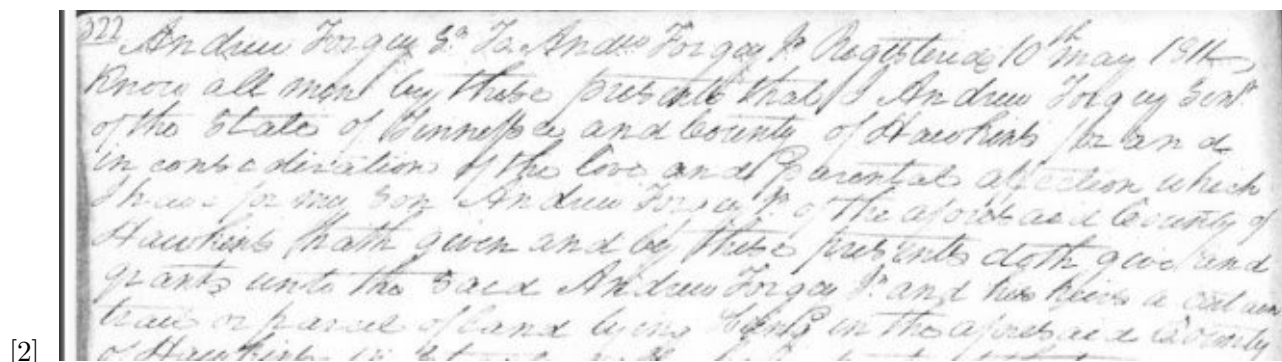 322 Andrew Forgey Sr. To Andw Forgey Jr. Registered 10th May 1814
Know all men by these presents that I Andrew Forgey Senr.
of the State of Tennessee and County of Hawkins for and
in consederation of the love and Parental affection which
I have for my Son Andrew Forgey Jr. of the aforesaid County of
Hawkins hath given and by these presents doth give and
grants unto the said Andrew Forgey Jr. and his heirs a certain
tract or parcel of land lying & being in the aforesaid County
of Hawkins
[2]